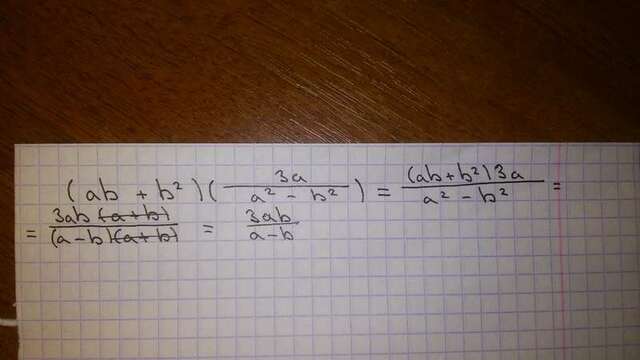 (ab + b²)(3a / a² - b²) = (ab + b²)3a / a² - b² =
= 3ab(a + b) / (a - b)(a + b) = 3ab / a - b